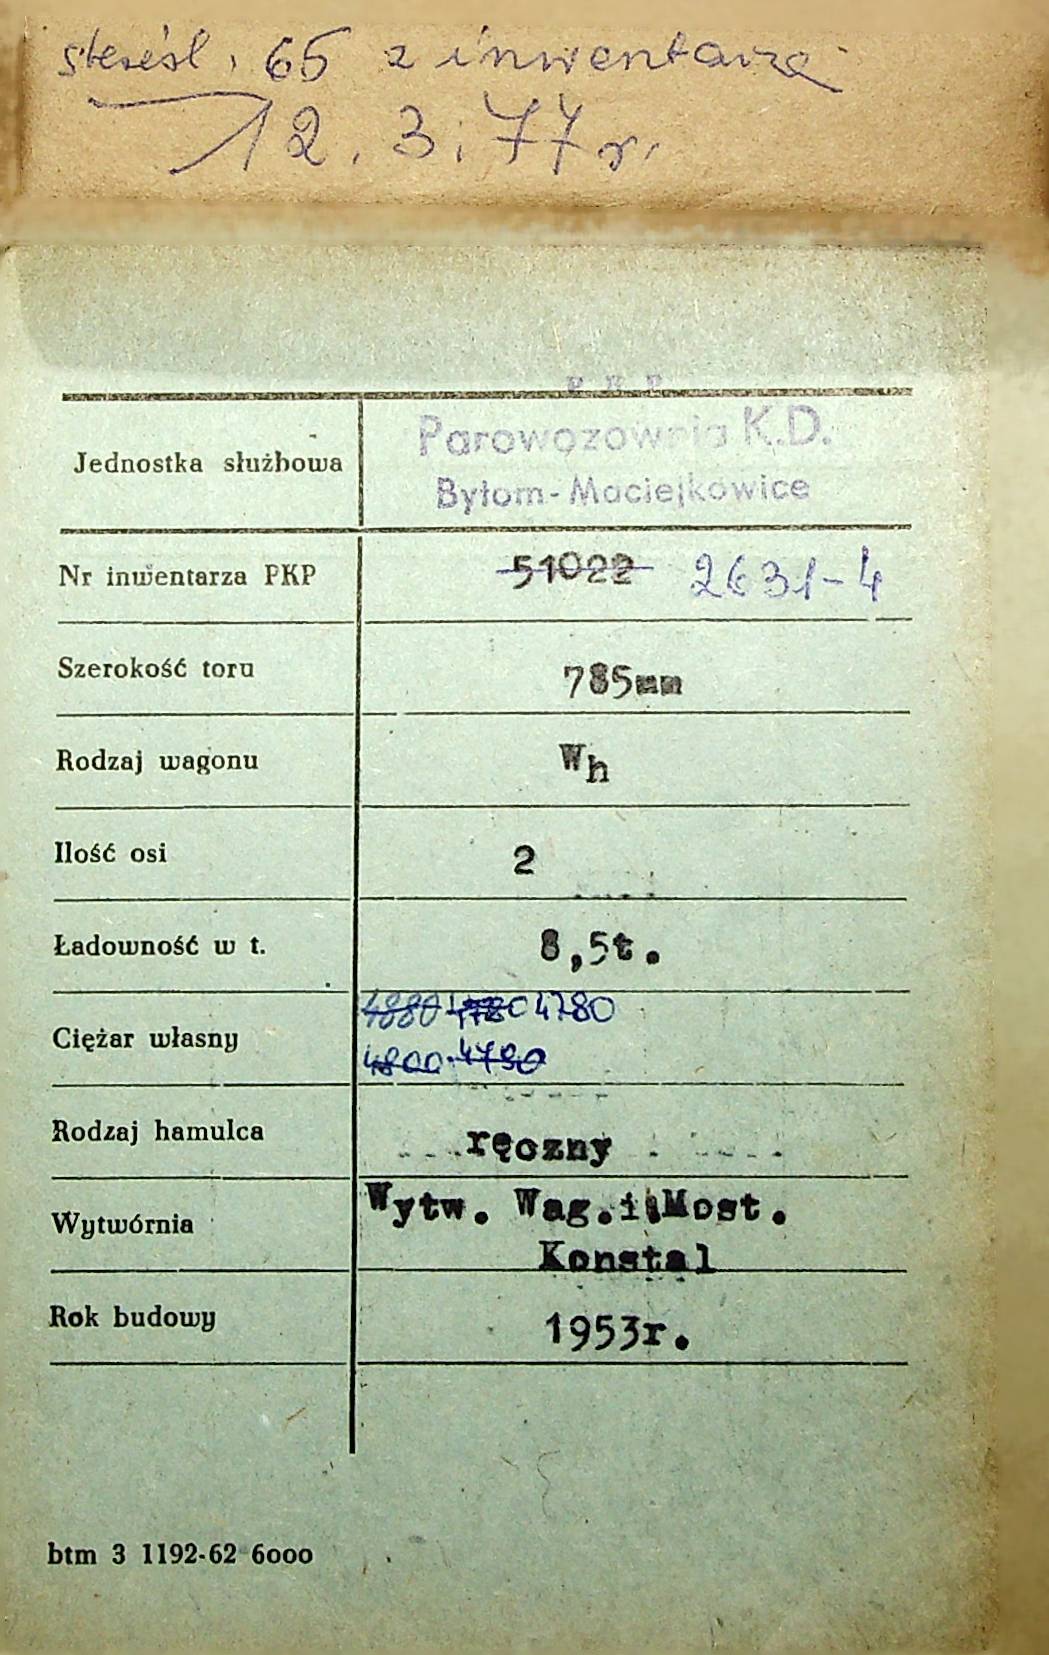 65 z inwentarza
12.3.77r.
P K P
Parowozownia K.D.
Jednostka służbowa
Bytom-Maciejkowice
Nr inwentarza PKP 51022 2631-4
Szerokość toru 785mm
Rodzaj wagonu Wh
Ilość osi 2
Ładowność w t. 8,5t.
4880 4780 4780
Ciężar własny
4800 4790
Rodzaj hamulca ręczny
Wytw. Wag.i Most.
Wytwórnia
Konstal
Rok budowy 1953r.
btm 3 1192-62 6000